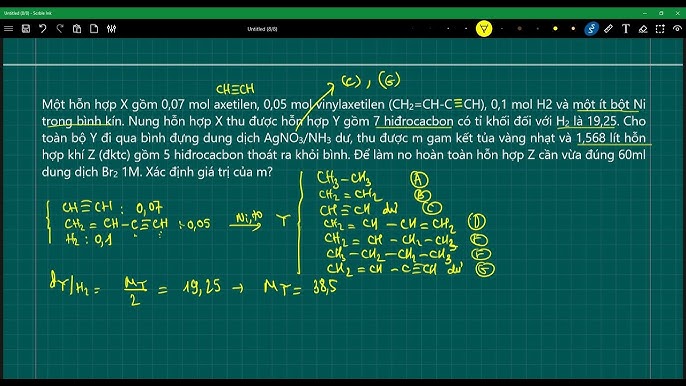 Untitled (8/8) - Scible Ink
Untitled (8/8)
CH≡CH
(C) , (G)
Một hỗn hợp X gồm 0,07 mol axetilen, 0,05 mol vinylaxetilen (CH2=CH-C≡CH), 0,1 mol H2 và một ít bột Ni
trong bình kín. Nung hỗn hợp X thu được hỗn hợp Y gồm 7 hiđrocacbon có tỉ khối đối với H2 là 19,25. Cho
toàn bộ Y đi qua bình đựng dung dịch AgNO3/NH3 dư, thu được m gam kết tủa vàng nhạt và 1,568 lít hỗn
hợp khí Z (đktc) gồm 5 hiđrocacbon thoát ra khỏi bình. Để làm no hoàn toàn hỗn hợp Z cần vừa đúng 60ml
dung dịch Br2 1M. Xác định giá trị của m?
CH3-CH3 (A)
CH2=CH2 (B)
CH≡CH : 0,07
CH≡CH dư (C)
CH2=CH-C≡CH : 0,05 Ni,to Y
CH2=CH-CH=CH2 (D)
H2: 0,1
CH2=CH-CH2-CH3 (E)
CH3-CH2-CH2-CH3 (F)
CH2=CH-C≡CH dư (G)
dY/H2 = MY/2 = 19,25 → MY = 38,5